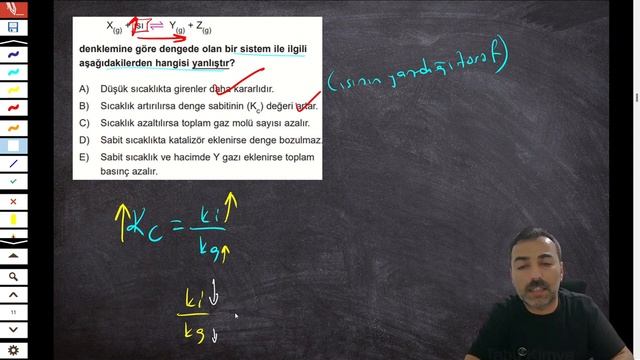 X(g) + ısı ⇌ Y(g) + Z(g)
denklemine göre dengede olan bir sistem ile ilgili
aşağıdakilerden hangisi yanlıştır?
A) Düşük sıcaklıkta girenler daha kararlıdır.
B) Sıcaklık artırılırsa denge sabitinin (Kc) değeri artar.
C) Sıcaklık azaltılırsa toplam gaz molü sayısı azalır.
D) Sabit sıcaklıkta katalizör eklenirse denge bozulmaz.
E) Sabit sıcaklık ve hacimde Y gazı eklenirse toplam
basınç azalır.
(ısının yazdığı taraf)
↑Kc = ki↑
kg↑
ki↓
kg↓
11